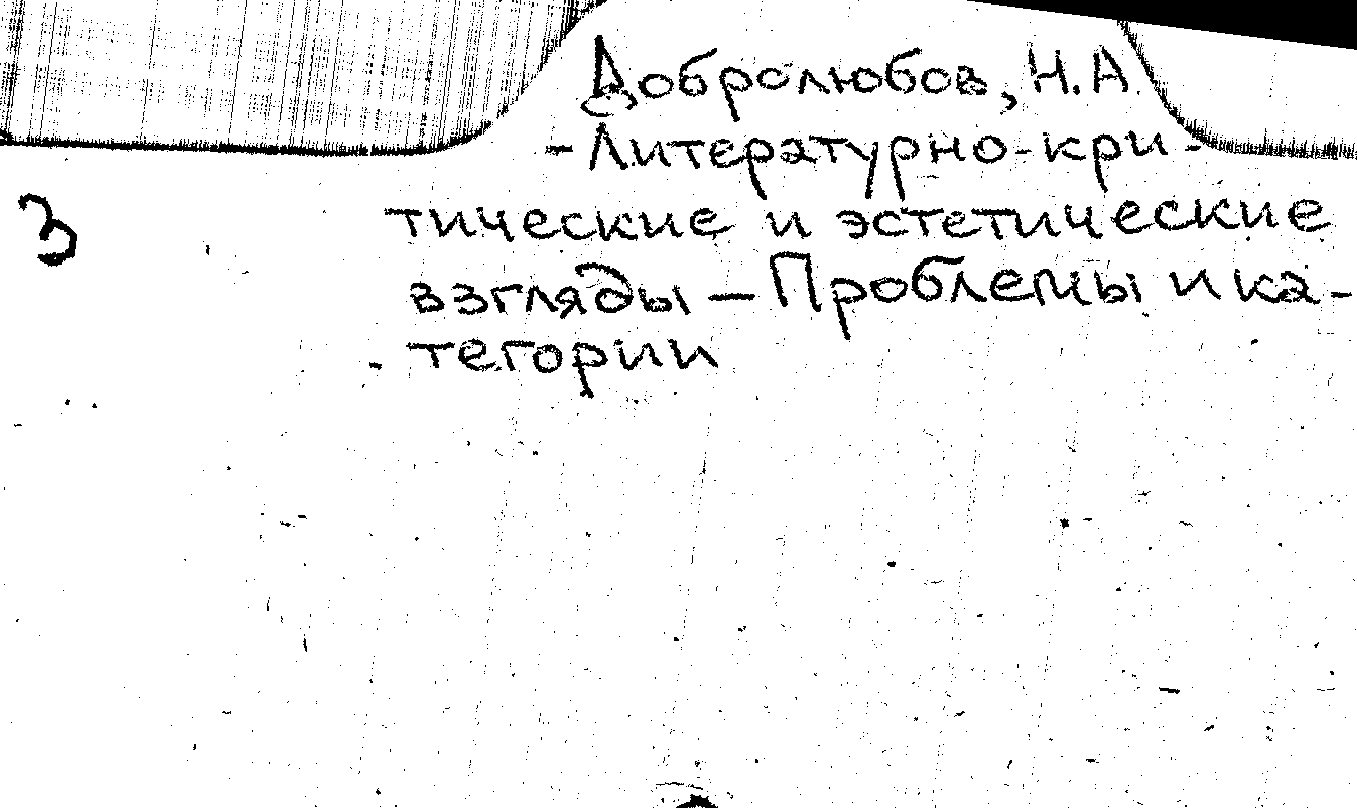 Добролюбов, Н.А.
- Литературно-кри-
3 тические и эстетические
взгляды — Проблемы и ка-
тегории